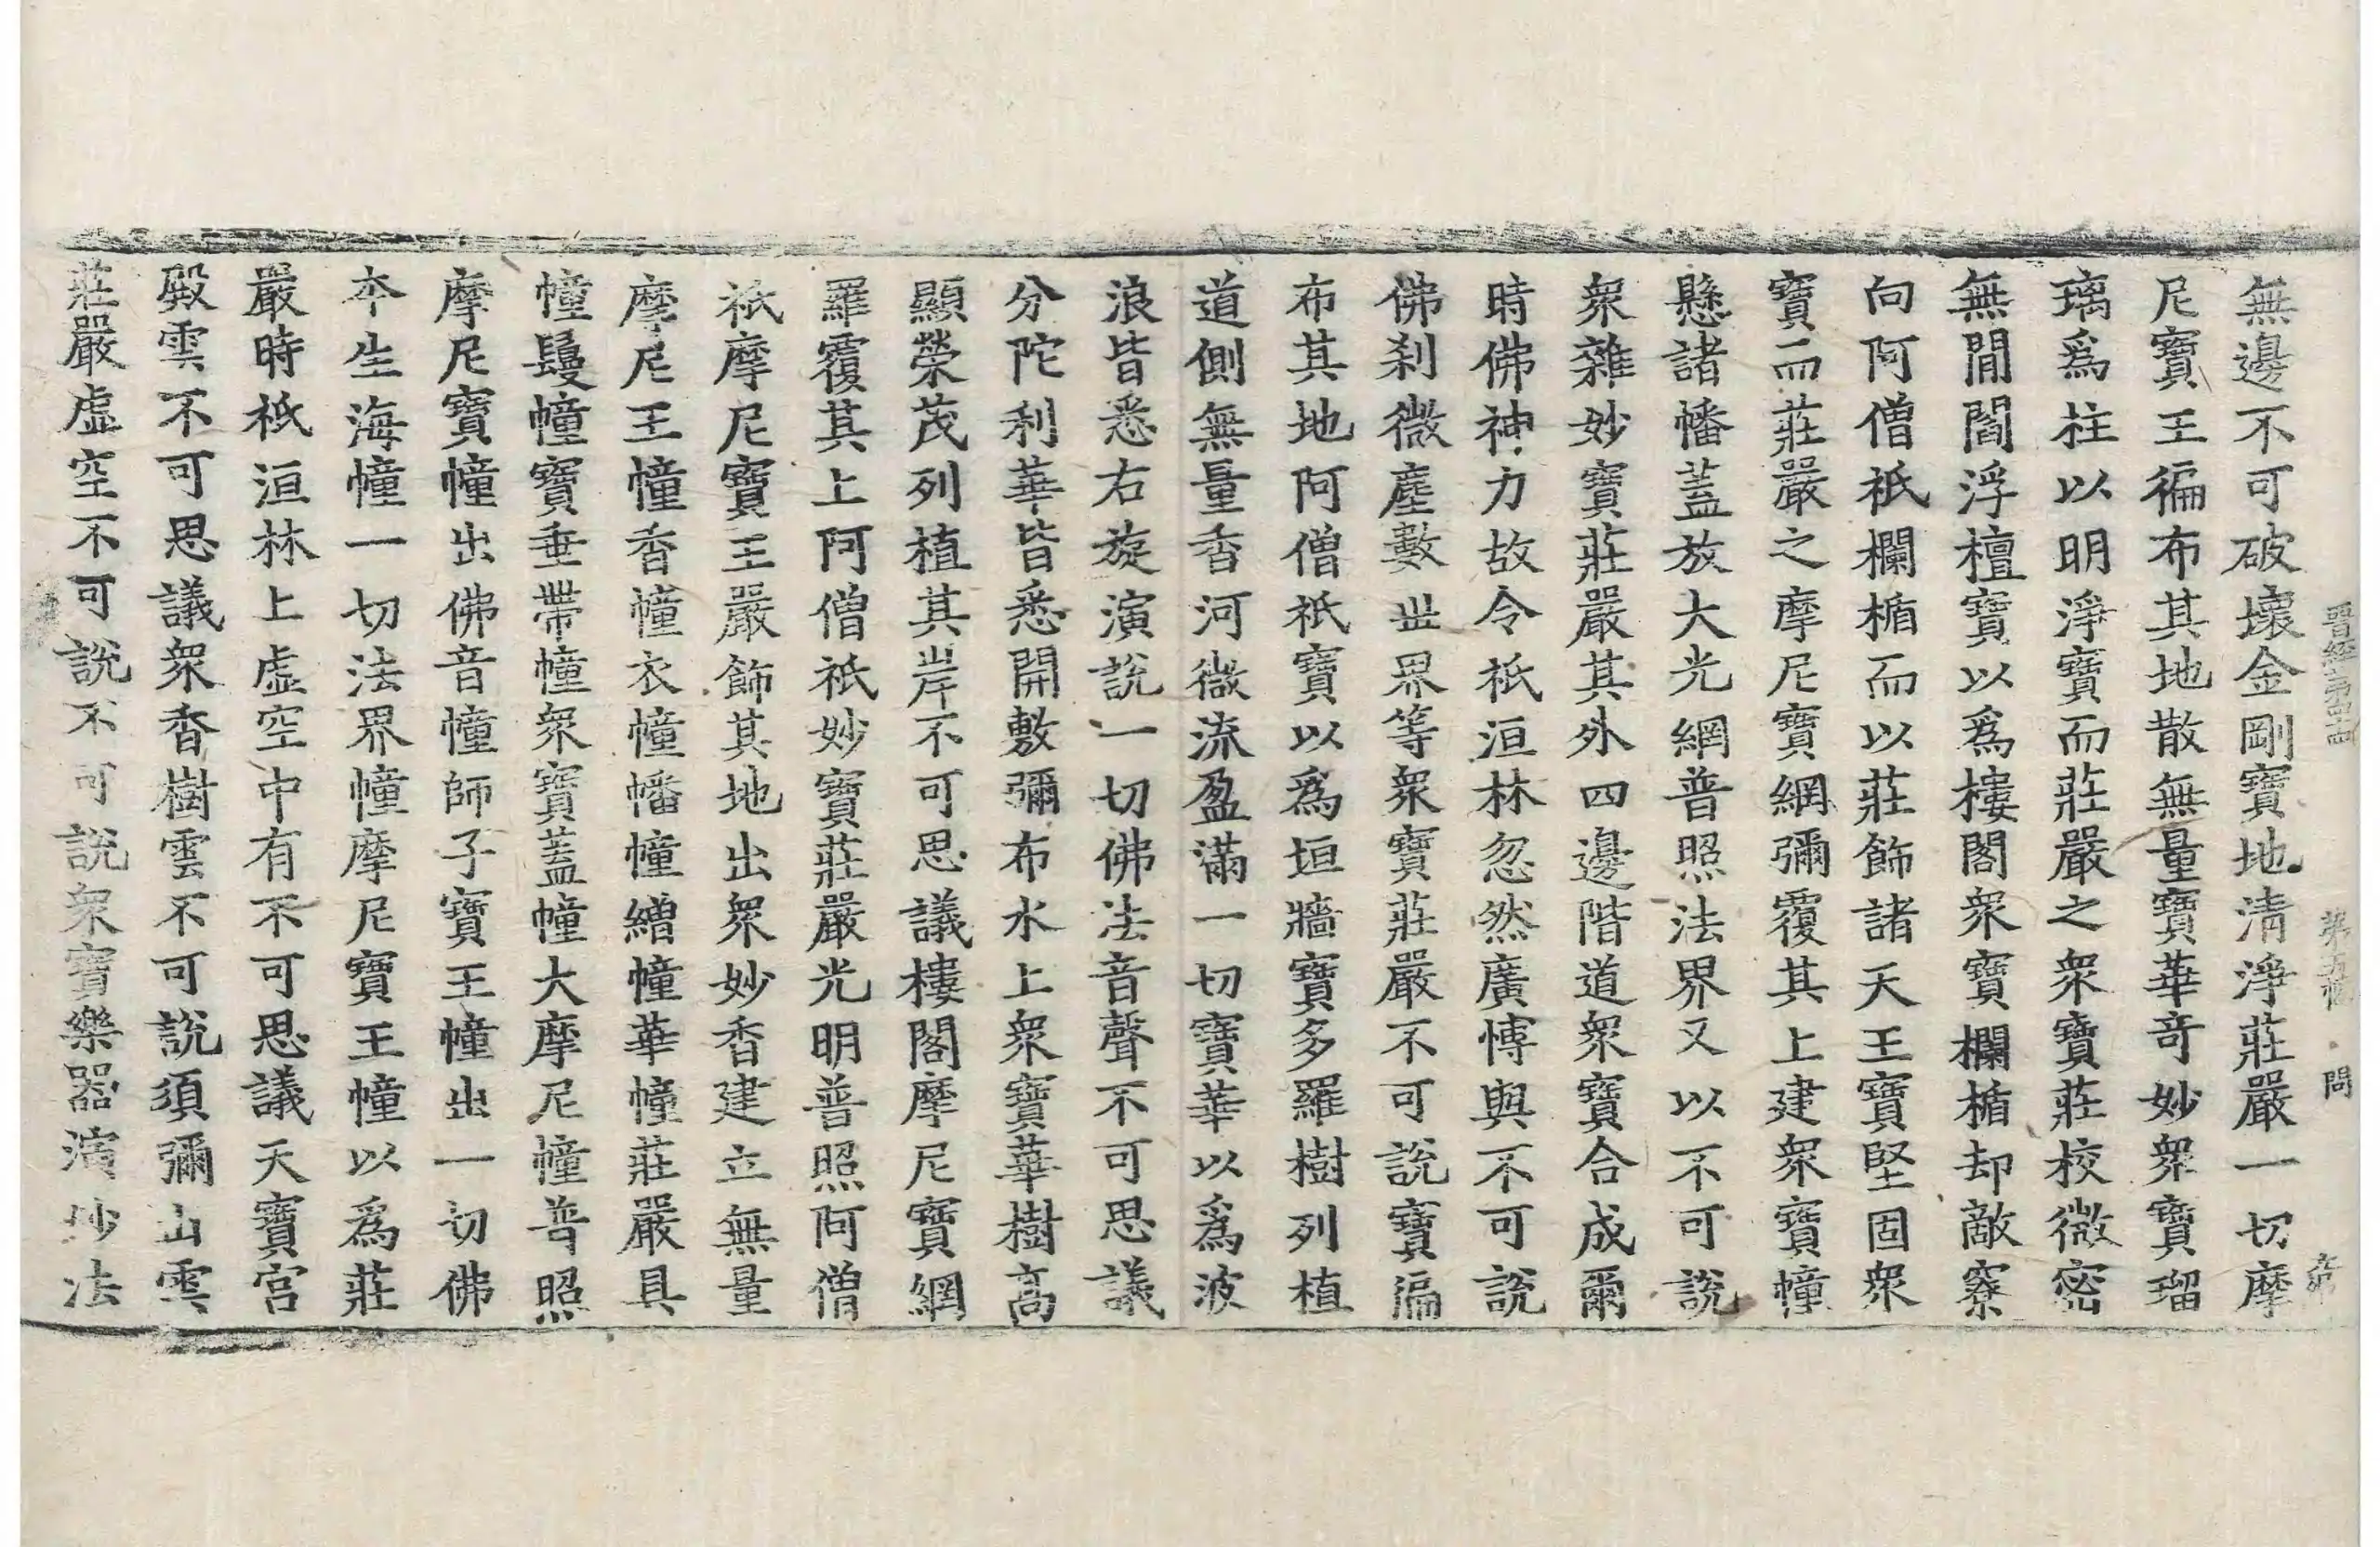 晉經第四十四 第五幅 問
無邊不可破壞金剛寶地清淨莊嚴一切摩
尼寶王徧布其地散無量寶華奇妙衆寶瑠
璃爲柱以明淨寶而莊嚴之衆寶莊校微密
無閒閻浮檀寶以爲樓閣衆寶欄楯却敵寮
向阿僧祇欄楯而以莊飾諸天王寶堅固衆
寶而莊嚴之摩尼寶網彌覆其上建衆寶幢
懸諸幡蓋放大光網普照法界又以不可說
衆雜妙寶莊嚴其外四邊階道衆寶合成爾
時佛神力故令祇洹林忽然廣博與不可說
佛刹微塵數世界等衆寶莊嚴不可說寶徧
布其地阿僧祇寶以爲垣牆寶多羅樹列植
道側無量香河微流盈滿一切寶華以爲波
浪皆悉右旋演說一切佛法音聲不可思議
分陀利華皆悉開敷彌布水上衆寶華樹高
顯榮茂列植其岸不可思議樓閣摩尼寶網
羅覆其上阿僧祇妙寶莊嚴光明普照阿僧
祇摩尼寶王嚴飾其地出衆妙香建立無量
摩尼王幢香幢衣幢幡幢繒幢華幢莊嚴具
幢鬘幢寶垂帶幢衆寶蓋幢大摩尼幢普照
摩尼寶幢出佛音幢師子寶王幢出一切佛
本生海幢一切法界幢摩尼寶王幢以爲莊
嚴時祇洹林上虛空中有不可思議天寶宮
殿雲不可思議衆香樹雲不可說須彌山雲
莊嚴虛空不可說不可說衆寶樂器演妙法